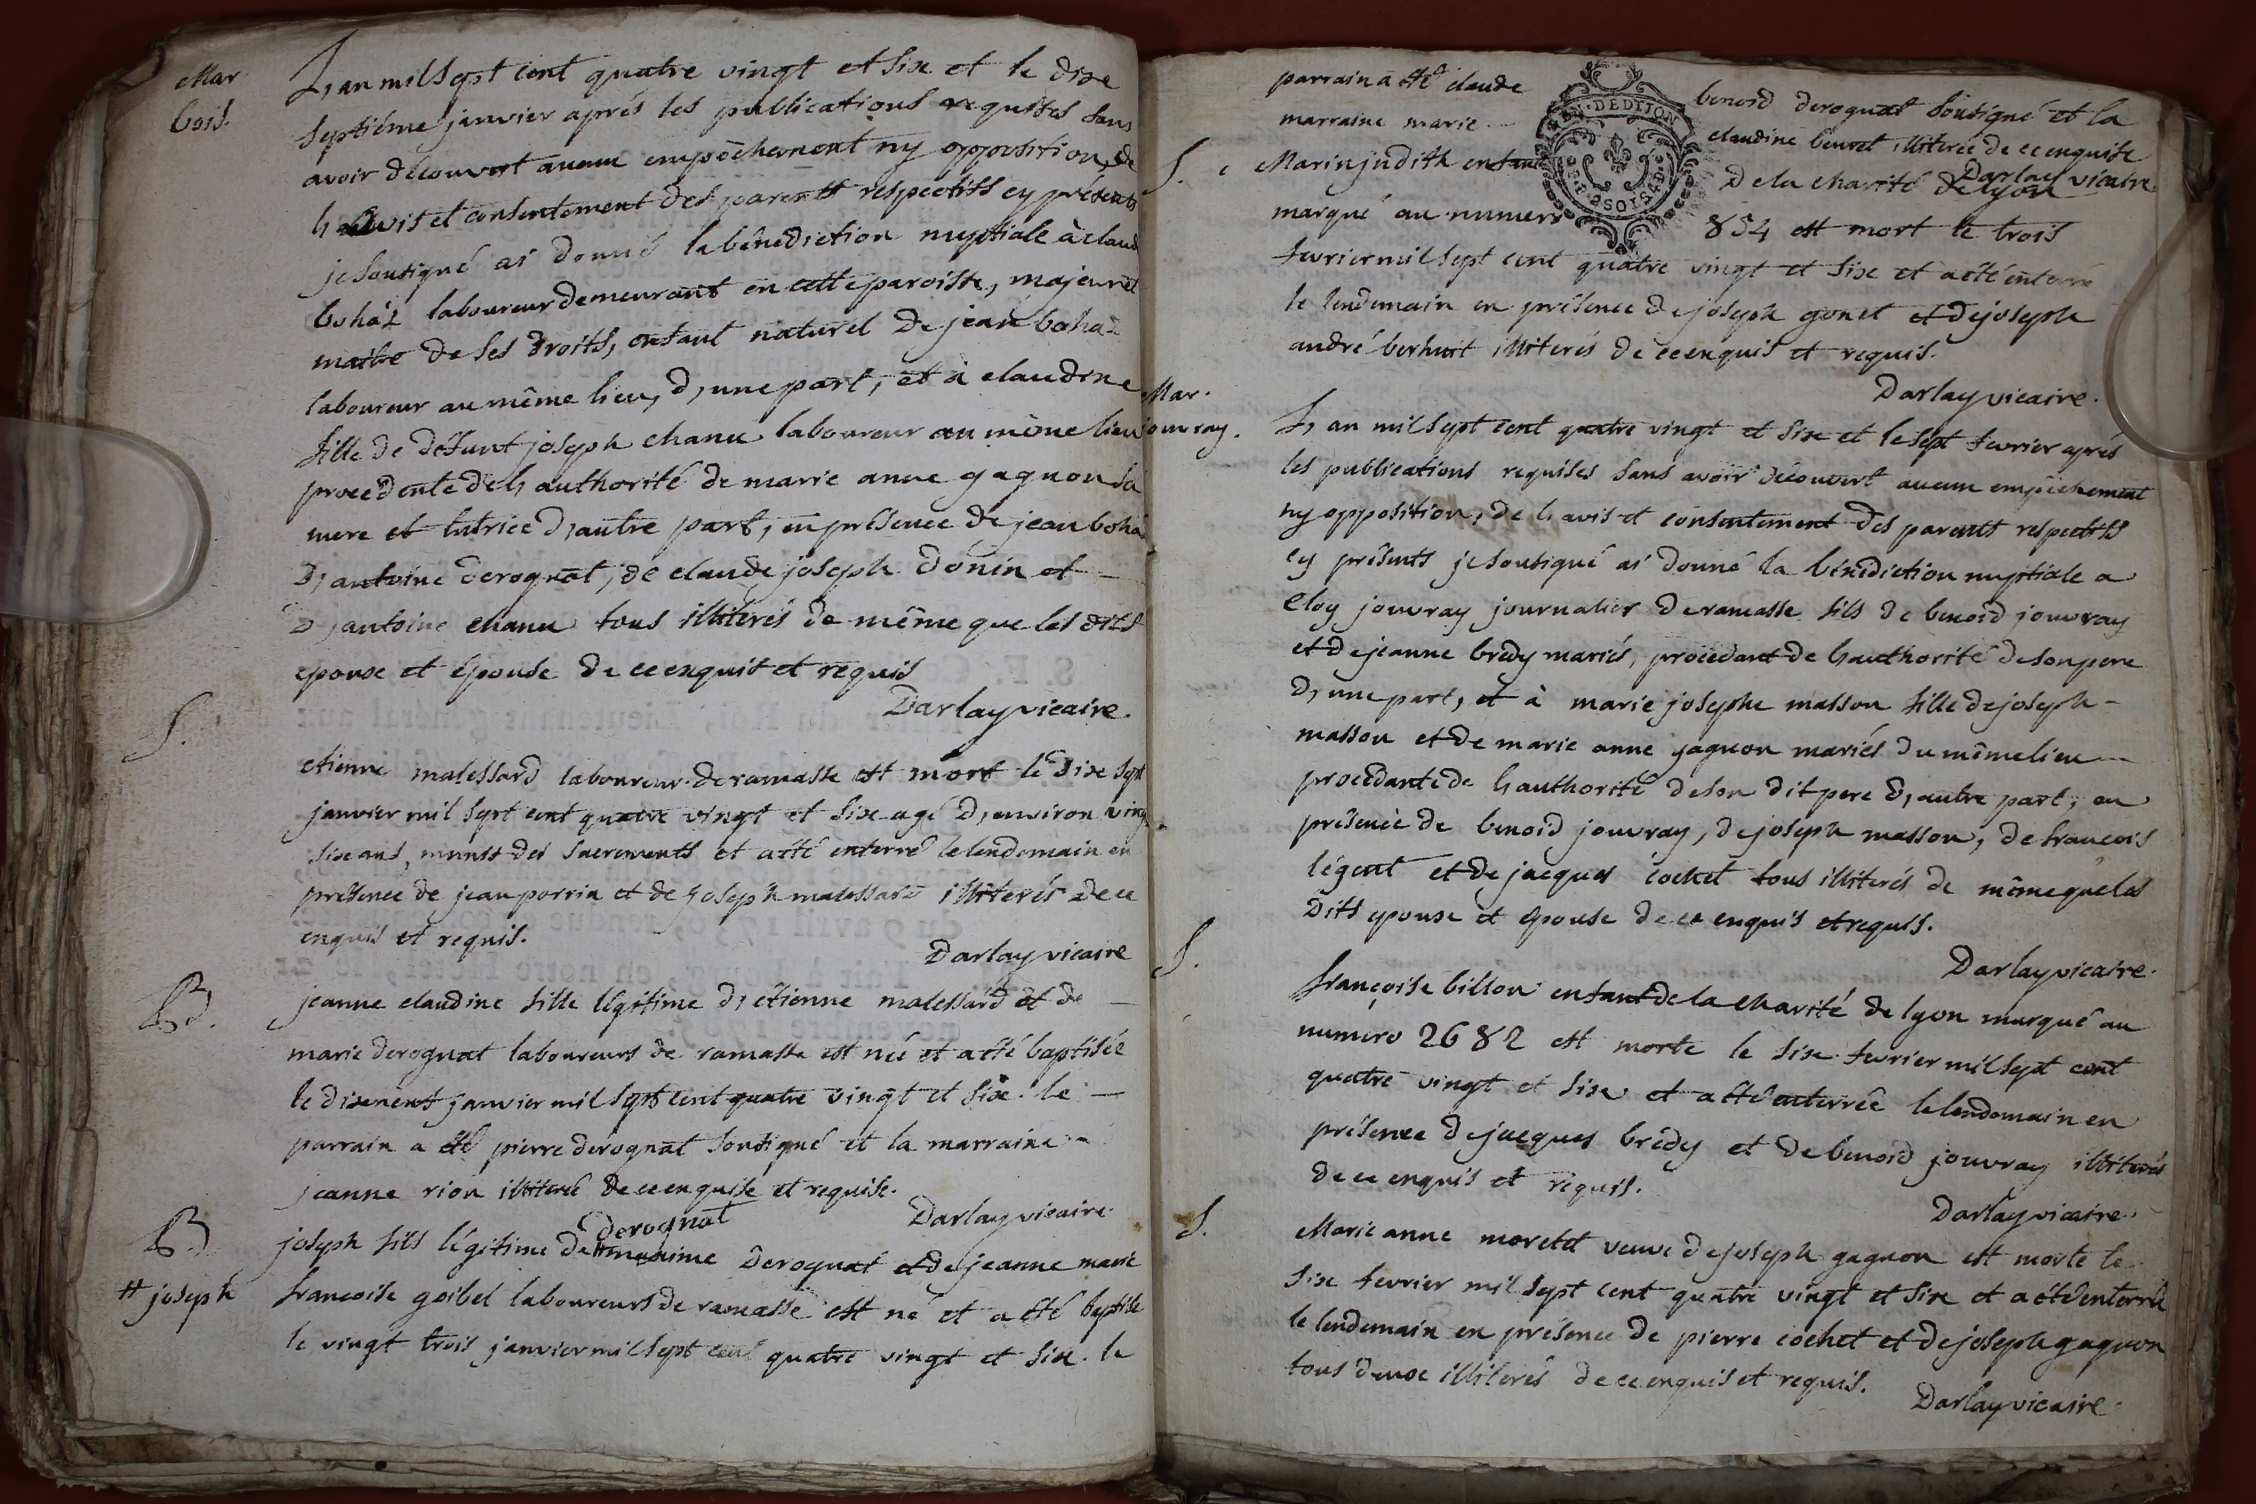 Mar
bois.
L, an mil sept cent quatre vingt et six et le dixe
septiéme janvier aprés les publications requises sans
avoir découvert aucun empêchement ny opposition, de
l, avis et consentement des parents respectifs cy présents
je soussigné ai donné la bénédiction nuptiale à claude
bohàz laboureur demeurant en cette paroisse, majeur et
maitre de ses droits, enfant naturel de jean bohaz
laboureur au même lieu, d, une part, et à claudine
fille de défunt joseph chanu laboureur au même lieu
procédente de l, authorité de marie anne gagnon sa
mere et tutrice d, autre part, en présence de jean bohà
d, antoine derognat, de claude joseph donin et
d, antoine chanu tous illiterés de même que les dits
epoux et épouse de ce enquis et requis
Darlay vicaire.
S.
etienne malessard laboureur de ramasse est mort le dixe sept
janvier mil sept cent quatre vingt et six agé d, environ vingt
sixe ans, muni des sacrements et a été enterré le lendemain en
présence de jean porria et de joseph malessard illiterés de ce
enquis et requis.
Darlay vicaire
B.
jeanne claudine fille légitime d, étienne malessard et de
marie derognat laboureurs de ramasse est née et a été baptisée
le dixeneuf janvier mil sept cent quatre vingt et six. le
parrain a été pierre derognat soussigné et la marraine
jeanne rion illiterée de ce enquise et requise.
Darlay vicaire.
B.
derognat
joseph fils légitime de derognat et de jeanne marie
# joseph
francoise goibel laboureurs de ramasse est né et a été baptisé
le vingt trois janvier mil sept cent quatre vingt et six. le
parrain a été claude benoid derognat soussigné et la
GEN. DE DIJON
marraine marie claudine beuret illiterée de ce enquise
Darlay vicaire
S.
Marin judith enfant de la charité de lyon
marqué au numero 854 est mort le trois
fevrier mil sept cent quatre vingt et six et a été enterré
le lendemain en présence de joseph gonet et de joseph
andré berhuit illiterés de ce enquis et requis.
Darlay vicaire.
Mar.
jouvray.
L, an mil sept cent quatre vingt et six et le sept fevrier aprés
les publications requises sans avoir découvert aucun empêchement
ny opposition, de l, avis et consentement des parents respectifs
cy présents je soussigné ai donné la bénédiction nuptiale a
eloy jouvray journalier de ramasse fils de benoid jouvray
et de jeanne brédy mariés, procédant de l, authorité de son pere
d, une part, et à marie josephe masson fille de joseph
masson et de marie anne gagnon mariés du même lieu
procédante de l, authorité de son dit pere d, autre part, en
présence de benoid jouvray, de joseph masson, de francois
légent et de jacques cochet tous illiterés de même que les
dits epoux et épouse de ce enquis et requis.
Darlay vicaire.
S.
françoise billon enfant de la charité de lyon marqué au
numéro 2682 est morte le six fevrier mil sept cent
quatre vingt et six et a été enterrée le lendemain en
présence de jacques brédy et de benoid jouvray illiterés
de ce enquis et requis.
Darlay vicaire.
S.
Marie anne moretet veuve de joseph gagnon est morte le
six fevrier mil sept cent quatre vingt et six et a été enterrée
le lendemain en présence de pierre cochet et de joseph gagnon
tous deux illiterés de ce enquis et requis.
Darlay vicaire.